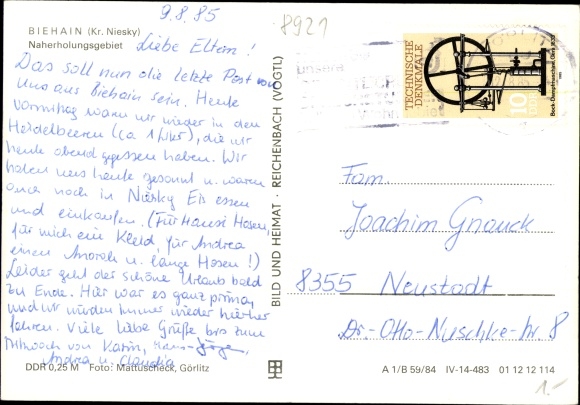 9.8.85
8921
BIEHAIN (Kr. Niesky)
Naherholungsgebiet
Liebe Eltern!
Das soll nun die letzte Post von
uns aus Biehain sein. Heute
Vormittag waren wir wieder in den
Heidelbeeren (ca 1 Liter), die wir
heute abend gegessen haben. Wir
haben uns heute gesonnt u. waren
auch noch in Niesky Eis essen
und einkaufen. (Für Hansi Hosen,
für mich ein Kleid, für Andrea
einen Anorak u. lange Hosen!)
Leider geht der schöne Urlaub bald
zu Ende. Hier war es ganz prima
und wir würden immer wieder hierher
fahren. Viele liebe Grüße bis zum
Mittwoch von Karin, Hans-Jürgen,
Andrea u. Claudia
DDR 0,25 M Foto: Mattuscheck, Görlitz
BILD UND HEIMAT · REICHENBACH (VOGTL)
TECHNISCHE
DENKMALE
10
DDR
Fam.
Joachim Gnauck
8355 Neustadt
Dr.-Otto-Nuschke-Str. 8
A 1/B 59/84 IV-14-483 01 12 12 114
1.-